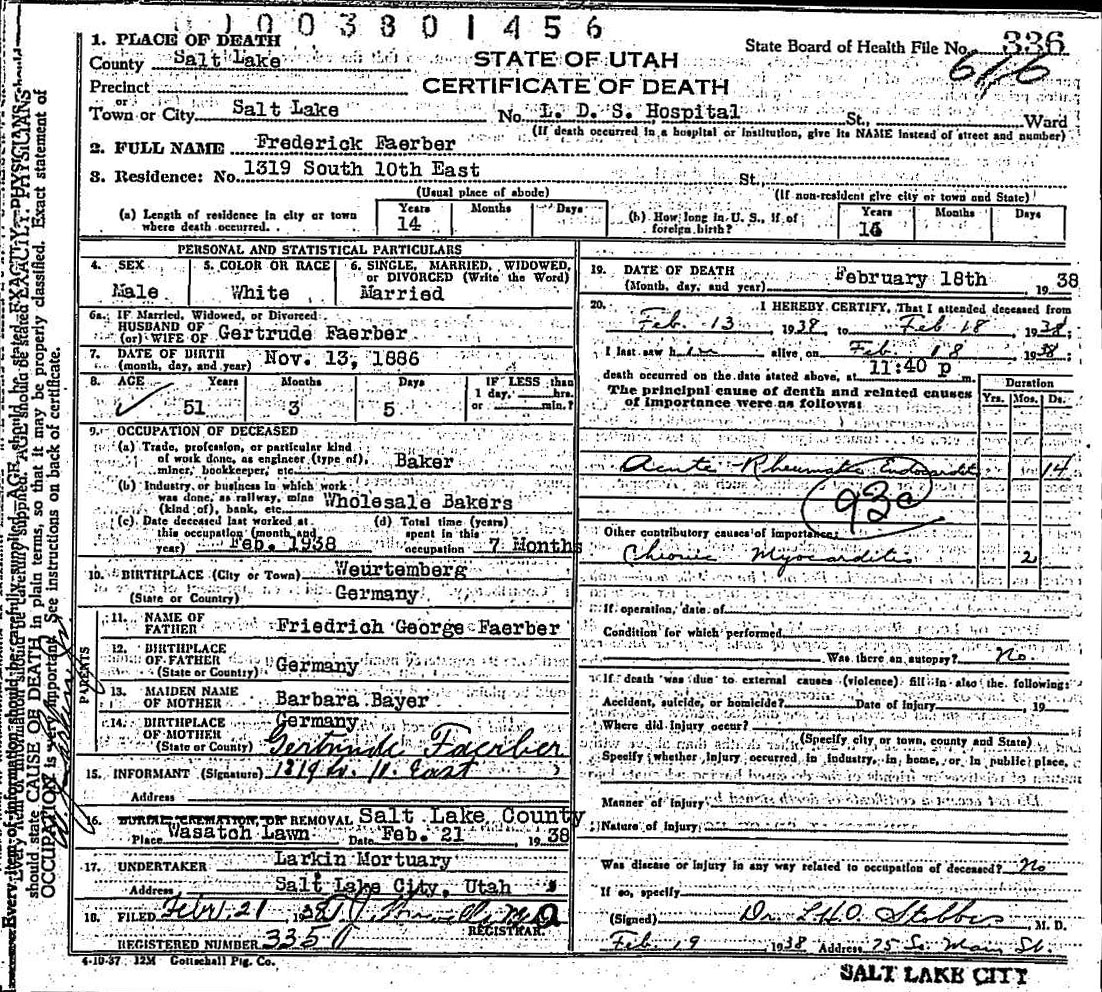 1003801456
1. PLACE OF DEATH
State Board of Health File No. 336
County Salt Lake
STATE OF UTAH
616
Precinct
CERTIFICATE OF DEATH
or
Town or City Salt Lake No. L. D. S. Hospital St., Ward
(If death occurred in a hospital or institution, give its NAME instead of street and number)
2. FULL NAME Frederick Faerber
3. Residence: No. 1319 South 10th East St.
(Usual place of abode) (If non-resident give city or town and State)
(a) Length of residence in city or town where death occurred. Years 14 Months Days
(b) How long in U. S., if of foreign birth? Years Months Days
PERSONAL AND STATISTICAL PARTICULARS
4. SEX Male
5. COLOR OR RACE White
6. SINGLE, MARRIED, WIDOWED, or DIVORCED (Write the Word) Married
6a. If Married, Widowed, or Divorced
HUSBAND OF
(or) WIFE OF Gertrude Faerber
7. DATE OF BIRTH
(month, day, and year) Nov. 13, 1886
8. AGE Years 51 Months 3 Days 5 IF LESS than 1 day, hrs. or min.?
9. OCCUPATION OF DECEASED
(a) Trade, profession, or particular kind
of work done, as engineer (type of),
miner, bookkeeper, etc. Baker
(b) Industry or business in which work
was done, as railway, mine
(kind of), bank, etc. Wholesale Bakers
(c) Date deceased last worked at
this occupation (month and
year) Feb. 1938
(d) Total time (years)
spent in this
occupation 7 Months
10. BIRTHPLACE (City or Town) Weurtemberg
(State or Country) Germany
PARENTS
11. NAME OF
FATHER Friedrich George Faerber
12. BIRTHPLACE
OF FATHER
(State or County) Germany
13. MAIDEN NAME
OF MOTHER Barbara Bayer
14. BIRTHPLACE
OF MOTHER
(State or County) Germany
Gertrude Faerber
15. INFORMANT (Signature) 1319 So. East
Address
16. BURIAL, CREMATION, OR REMOVAL Salt Lake County
Place Wasatch Lawn Date Feb. 21, 1938
17. UNDERTAKER Larkin Mortuary
Address Salt Lake City, Utah
18. FILED Feb. 21
REGISTRAR.
REGISTERED NUMBER 335
4-10-37 12M Gottschall Ptg. Co.
19. DATE OF DEATH
(Month, day, and year) February 18th, 1938
20. I HEREBY CERTIFY, That I attended deceased from
Feb. 13, 1938, to Feb 18, 1938;
I last saw him alive on Feb. 18, 1938;
death occurred on the date stated above, at 11:40 p m.
The principal cause of death and related causes
of importance were as follows:
Duration
Yrs. Mos. Ds.
Acute Rheumatic Endocarditis 14
93c
Other contributory causes of importance:
Chronic Myocarditis 2
If operation, date of
Condition for which performed
Was there an autopsy? No
If death was due to external causes (violence) fill in also the following:
Accident, suicide, or homicide? Date of injury, 19
Where did injury occur?
(Specify city or town, county and State)
Specify whether injury occurred in industry, in home, or in public place,
Manner of injury
Nature of injury
Was disease or injury in any way related to occupation of deceased? No
If so, specify
(Signed) Dr. L.H.O. Stobbe, M. D.
Feb 19 1938 Address 75 So. Main St.
SALT LAKE CITY
should state CAUSE OF DEATH in plain terms, so that it may be properly classified. Exact statement of
OCCUPATION is very important. See instructions on back of certificate.